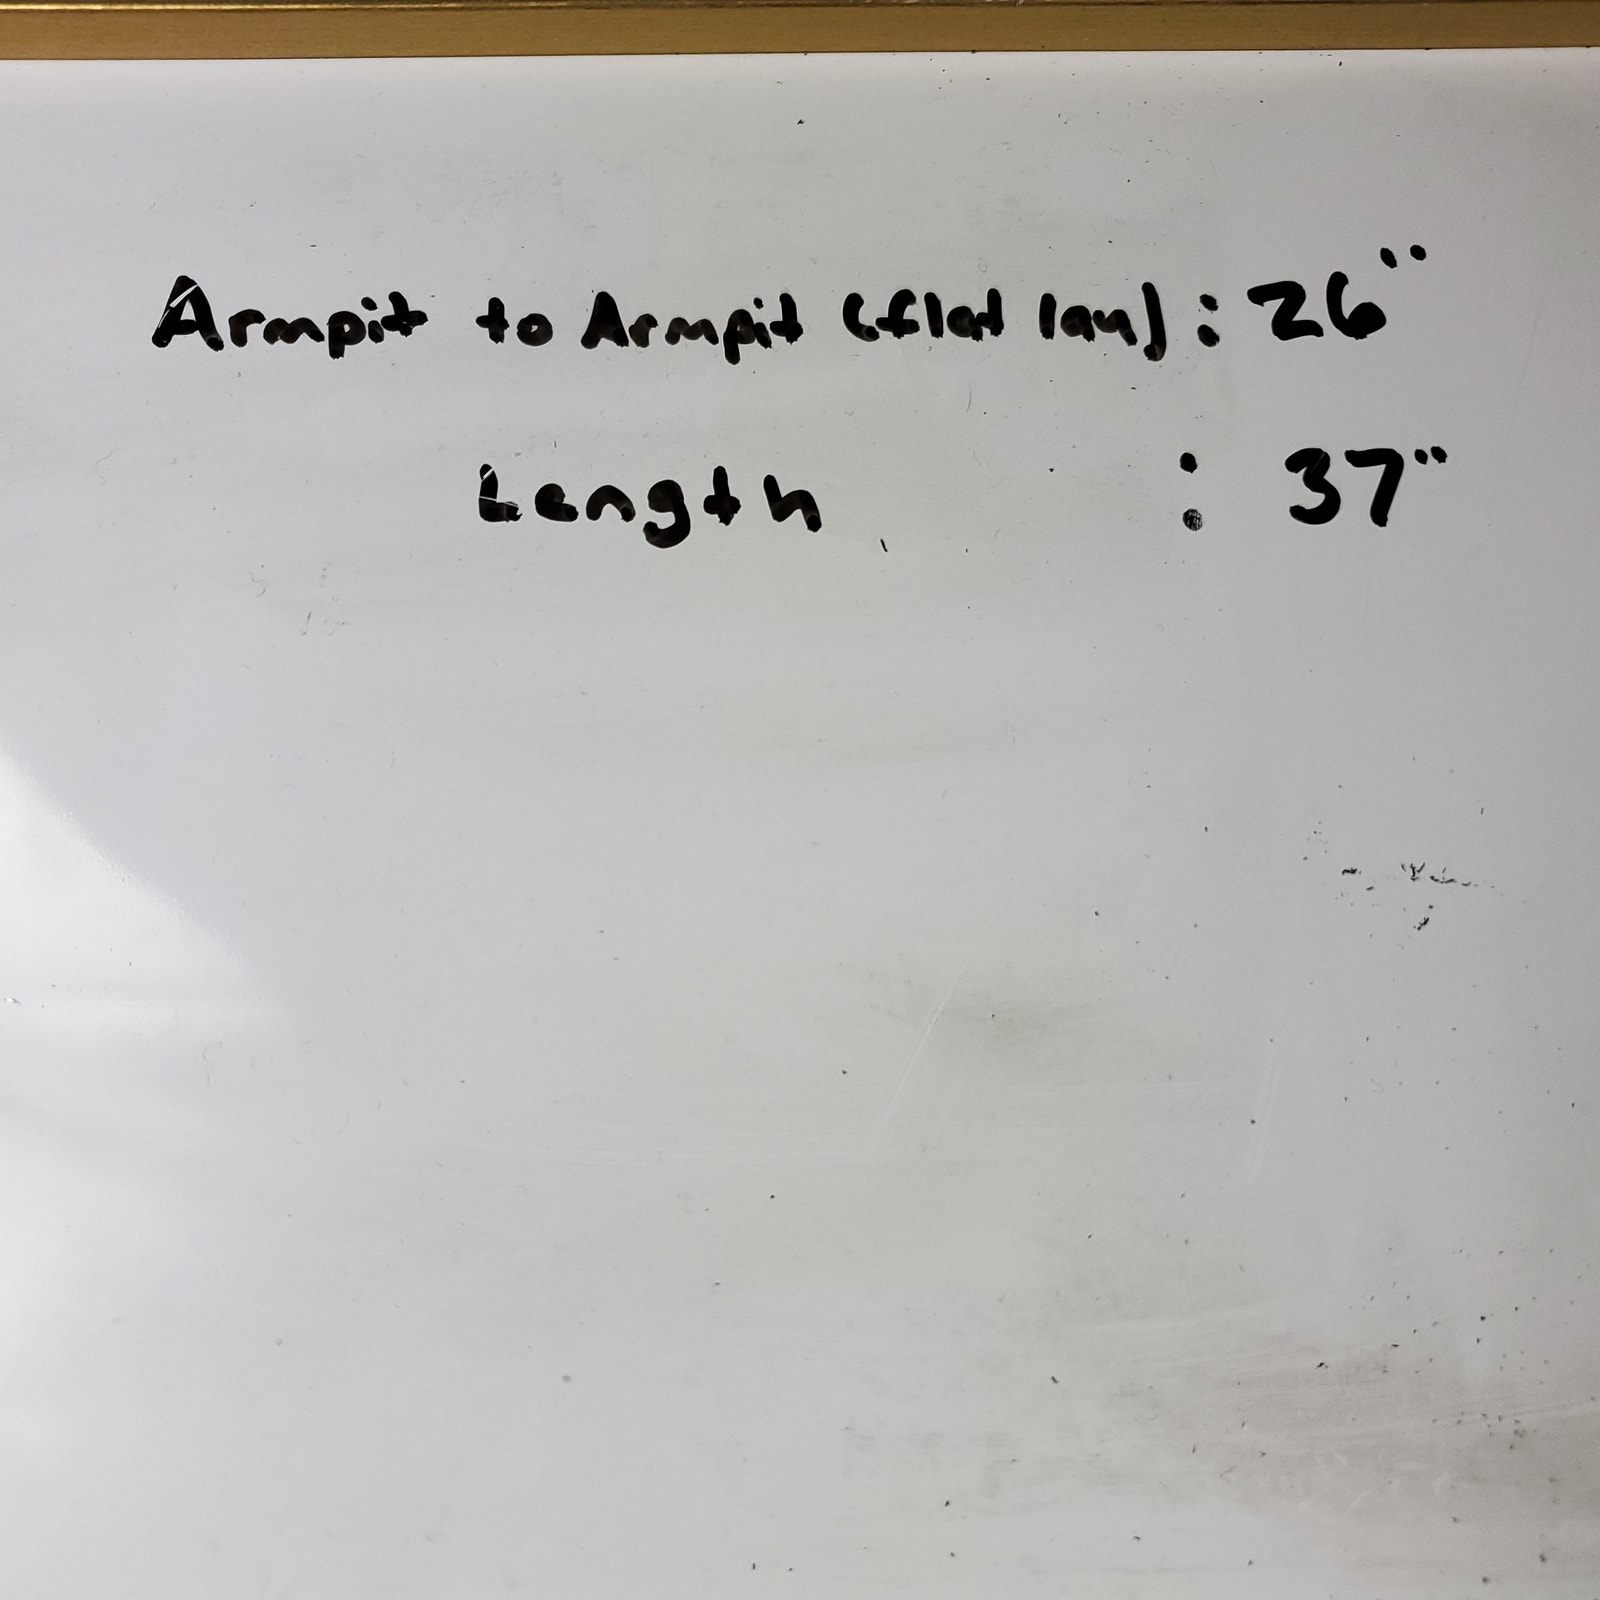 Armpit to Armpit (flat lay) : 26"
Length : 37"